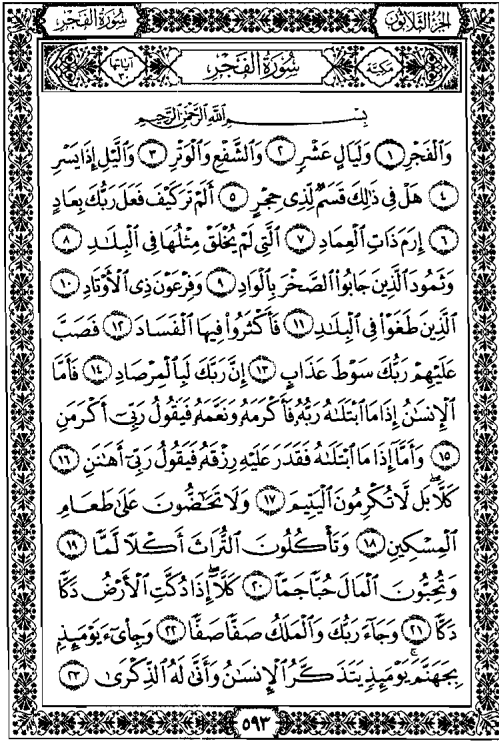 سُورَةُ الفَجْرِ الجُزْءُ الثَّلَاثُونَ
مَكِّيَّة سُورَةُ الفَجْرِ آيَاتُهَا ٣٠
بِسْمِ اللَّهِ الرَّحْمَٰنِ الرَّحِيمِ
وَالْفَجْرِ ١ وَلَيَالٍ عَشْرٍ ٢ وَالشَّفْعِ وَالْوَتْرِ ٣ وَاللَّيْلِ إِذَا يَسْرِ
٤ هَلْ فِي ذَٰلِكَ قَسَمٌ لِّذِي حِجْرٍ ٥ أَلَمْ تَرَ كَيْفَ فَعَلَ رَبُّكَ بِعَادٍ
٦ إِرَمَ ذَاتِ الْعِمَادِ ٧ الَّتِي لَمْ يُخْلَقْ مِثْلُهَا فِي الْبِلَٰدِ ٨
وَثَمُودَ الَّذِينَ جَابُوا الصَّخْرَ بِالْوَادِ ٩ وَفِرْعَوْنَ ذِي الْأَوْتَادِ ١٠
الَّذِينَ طَغَوْا فِي الْبِلَٰدِ ١١ فَأَكْثَرُوا فِيهَا الْفَسَادَ ١٢ فَصَبَّ
عَلَيْهِمْ رَبُّكَ سَوْطَ عَذَابٍ ١٣ إِنَّ رَبَّكَ لَبِالْمِرْصَادِ ١٤ فَأَمَّا
الْإِنسَٰنُ إِذَا مَا ابْتَلَىٰهُ رَبُّهُ فَأَكْرَمَهُ وَنَعَّمَهُ فَيَقُولُ رَبِّي أَكْرَمَنِ
١٥ وَأَمَّا إِذَا مَا ابْتَلَىٰهُ فَقَدَرَ عَلَيْهِ رِزْقَهُ فَيَقُولُ رَبِّي أَهَٰنَنِ ١٦
كَلَّا ۖ بَل لَّا تُكْرِمُونَ الْيَتِيمَ ١٧ وَلَا تَحَٰضُّونَ عَلَىٰ طَعَامِ
الْمِسْكِينِ ١٨ وَتَأْكُلُونَ التُّرَاثَ أَكْلًا لَّمًّا ١٩
وَتُحِبُّونَ الْمَالَ حُبًّا جَمًّا ٢٠ كَلَّا ۖ إِذَا دُكَّتِ الْأَرْضُ دَكًّا
دَكًّا ٢١ وَجَاءَ رَبُّكَ وَالْمَلَكُ صَفًّا صَفًّا ٢٢ وَجِاْيءَ يَوْمَئِذٍ
بِجَهَنَّمَ ۚ يَوْمَئِذٍ يَتَذَكَّرُ الْإِنسَٰنُ وَأَنَّىٰ لَهُ الذِّكْرَىٰ ٢٣
٥٩٣